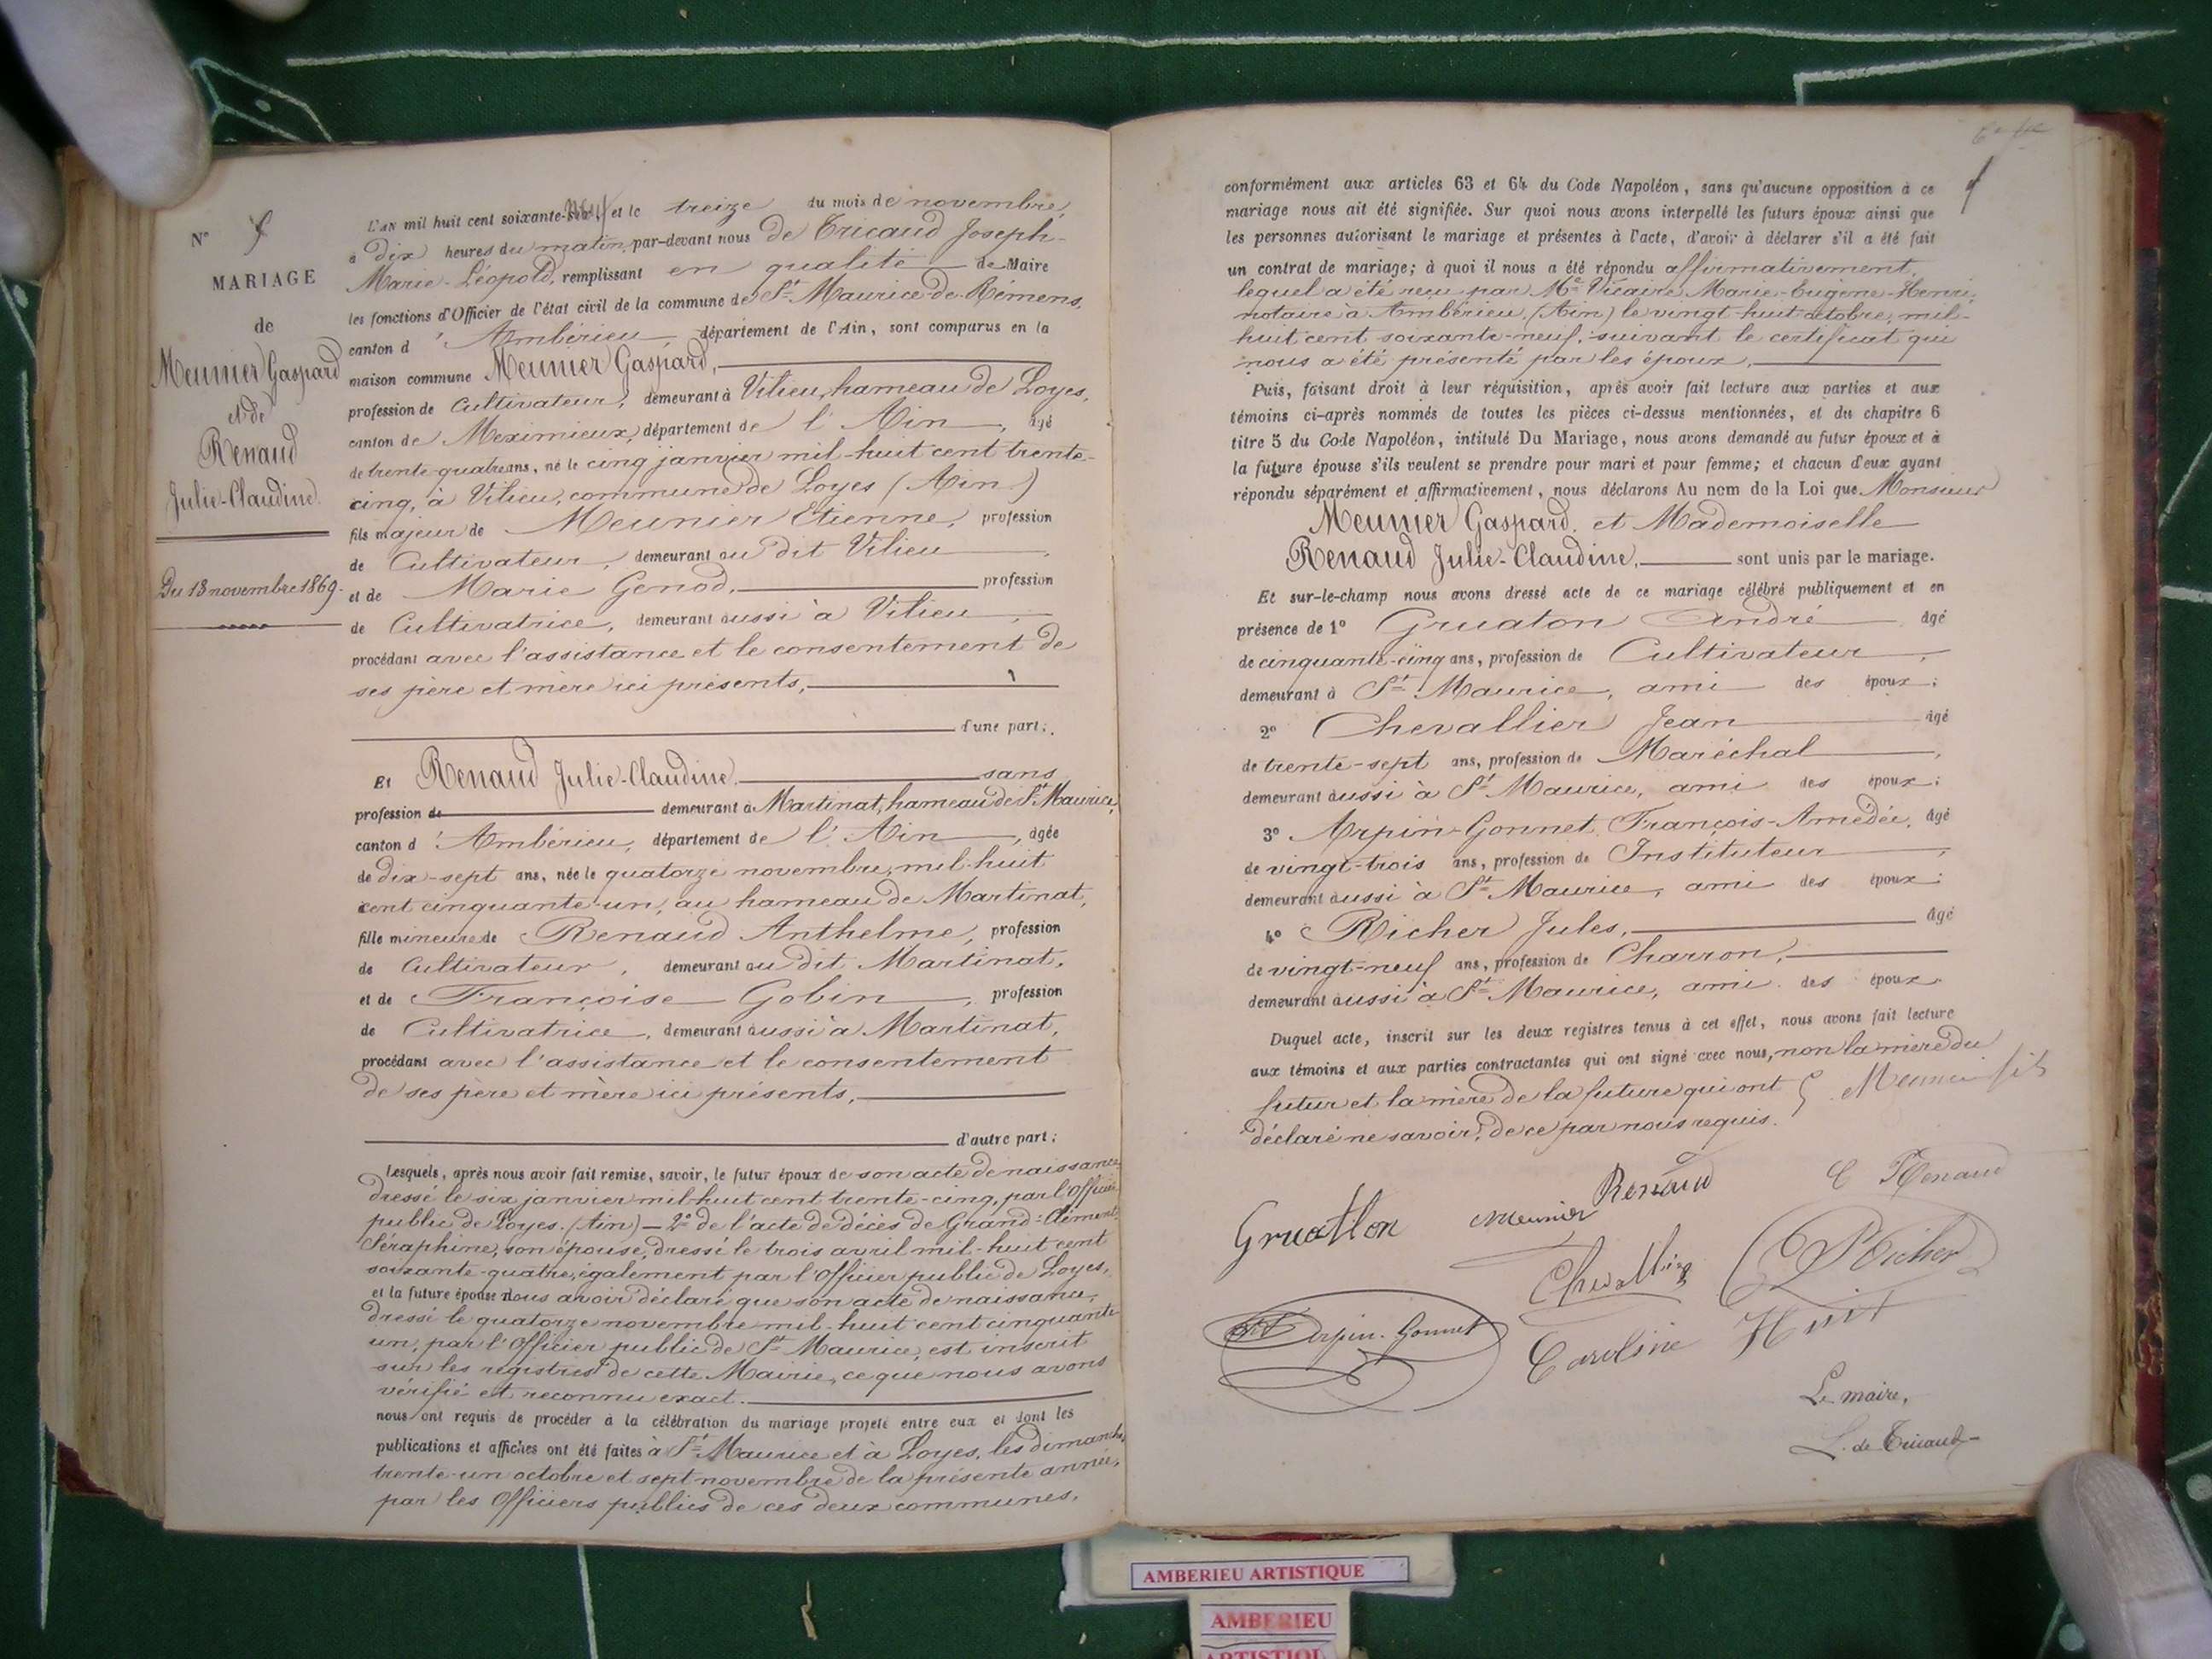 N°
MARIAGE
de
Meunier Gaspard
et de
Renaud
Julie-Claudine.
Du 13 novembre 1869.
L'AN mil huit cent soixante-neuf, et le treize du mois de novembre,
à dix heures du matin, par-devant nous de Tricaud Joseph-
Marie-Léopold, remplissant en qualité de Maire
les fonctions d'Officier de l'état civil de la commune de St Maurice-de-Rémens,
canton d'Ambérieu, département de l'Ain, sont comparus en la
maison commune Meunier Gaspard,
profession de Cultivateur, demeurant à Vilieu, hameau de Loyes,
canton de Meximieux, département de l'Ain, âgé
de trente-quatre ans, né le cinq janvier mil-huit cent trente-
cinq, à Vilieu, commune de Loyes (Ain)
fils majeur de Meunier Etienne, profession
de Cultivateur, demeurant au dit Vilieu,
et de Marie Genod, profession
de Cultivatrice, demeurant aussi à Vilieu,
procédant avec l'assistance et le consentement de
ses père et mère ici présents,
d'une part;
Et Renaud Julie-Claudine, sans
profession de demeurant à Martinat, hameau de St Maurice,
canton d'Ambérieu, département de l'Ain, âgée
de dix-sept ans, née le quatorze novembre, mil-huit
cent cinquante-un, au hameau de Martinat,
fille mineure de Renaud Anthelme, profession
de Cultivateur, demeurant au dit Martinat,
et de Françoise Gobin, profession
de Cultivatrice, demeurant aussi à Martinat,
procédant avec l'assistance et le consentement
de ses père et mère ici présents,
d'autre part;
Lesquels, après nous avoir fait remise, savoir, le futur époux de son acte de naissance
dressé le six janvier mil huit cent trente-cinq, par l'Officier
public de Loyes. (Ain) — 2° de l'acte de décès de Grand-Clément
Séraphine, son épouse, dressé le trois avril mil-huit cent
soixante-quatre, également par l'Officier public de Loyes,
et la future épouse nous avoir déclaré que son acte de naissance,
dressé le quatorze novembre mil-huit cent cinquante-
un, par l'Officier public de St Maurice, est inscrit
sur les registres de cette Mairie, ce que nous avons
vérifié et reconnu exact.
nous ont requis de procéder à la célébration du mariage projeté entre eux et dont les
publications et affiches ont été faites à St Maurice et à Loyes, les dimanches
trente-un octobre et sept novembre de la présente année,
par les Officiers publics de ces deux communes,
conformément aux articles 63 et 64 du Code Napoléon, sans qu'aucune opposition à ce
mariage nous ait été signifiée. Sur quoi nous avons interpellé les futurs époux ainsi que
les personnes autorisant le mariage et présentes à l'acte, d'avoir à déclarer s'il a été fait
un contrat de mariage; à quoi il nous a été répondu affirmativement,
lequel a été reçu par Me Vicaire Marie-Eugène-Henri,
notaire à Ambérieu, (Ain) le vingt-huit octobre, mil-
huit cent soixante-neuf, suivant le certificat qui
nous a été présenté par les époux,
Puis, faisant droit à leur réquisition, après avoir fait lecture aux parties et aux
témoins ci-après nommés de toutes les pièces ci-dessus mentionnées, et du chapitre 6
titre 5 du Code Napoléon, intitulé Du Mariage, nous avons demandé au futur époux et à
la future épouse s'ils veulent se prendre pour mari et pour femme; et chacun d'eux ayant
répondu séparément et affirmativement, nous déclarons Au nom de la Loi que Monsieur
Meunier Gaspard. et Mademoiselle
Renaud Julie-Claudine, sont unis par le mariage.
Et sur-le-champ nous avons dressé acte de ce mariage célébré publiquement et en
présence de 1° Gruaton André âgé
de cinquante-cinq ans, profession de Cultivateur,
demeurant à St Maurice, ami des époux;
2° Chevallier Jean âgé
de trente-sept ans, profession de Maréchal,
demeurant aussi à St Maurice, ami des époux;
3° Arpin-Gonnet François-Amédée, âgé
de vingt-trois ans, profession de Instituteur,
demeurant aussi à St Maurice, ami des époux;
4° Richer Jules, âgé
de vingt-neuf ans, profession de Charron,
demeurant aussi à St Maurice, ami des époux.
Duquel acte, inscrit sur les deux registres tenus à cet effet, nous avons fait lecture
aux témoins et aux parties contractantes qui ont signé avec nous, non la mère du
futur et la mère de la future qui ont
déclaré ne savoir, de ce par nous requis.
Meunier fils
Renaud
Renaud
Gruatlon
Meunier
Chevallier
Richer
Arpin-Gonnet
Caroline Huit
Le maire,
L. de Tricaud
AMBERIEU ARTISTIQUE
AMBERIEU
ARTISTIQU